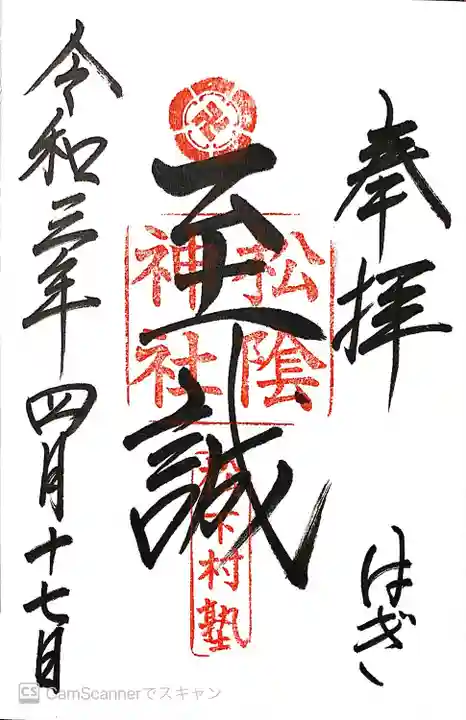 奉拝
はぎ
至誠
松陰
神社
松下村塾
令和三年四月十七日
CS CamScannerでスキャン